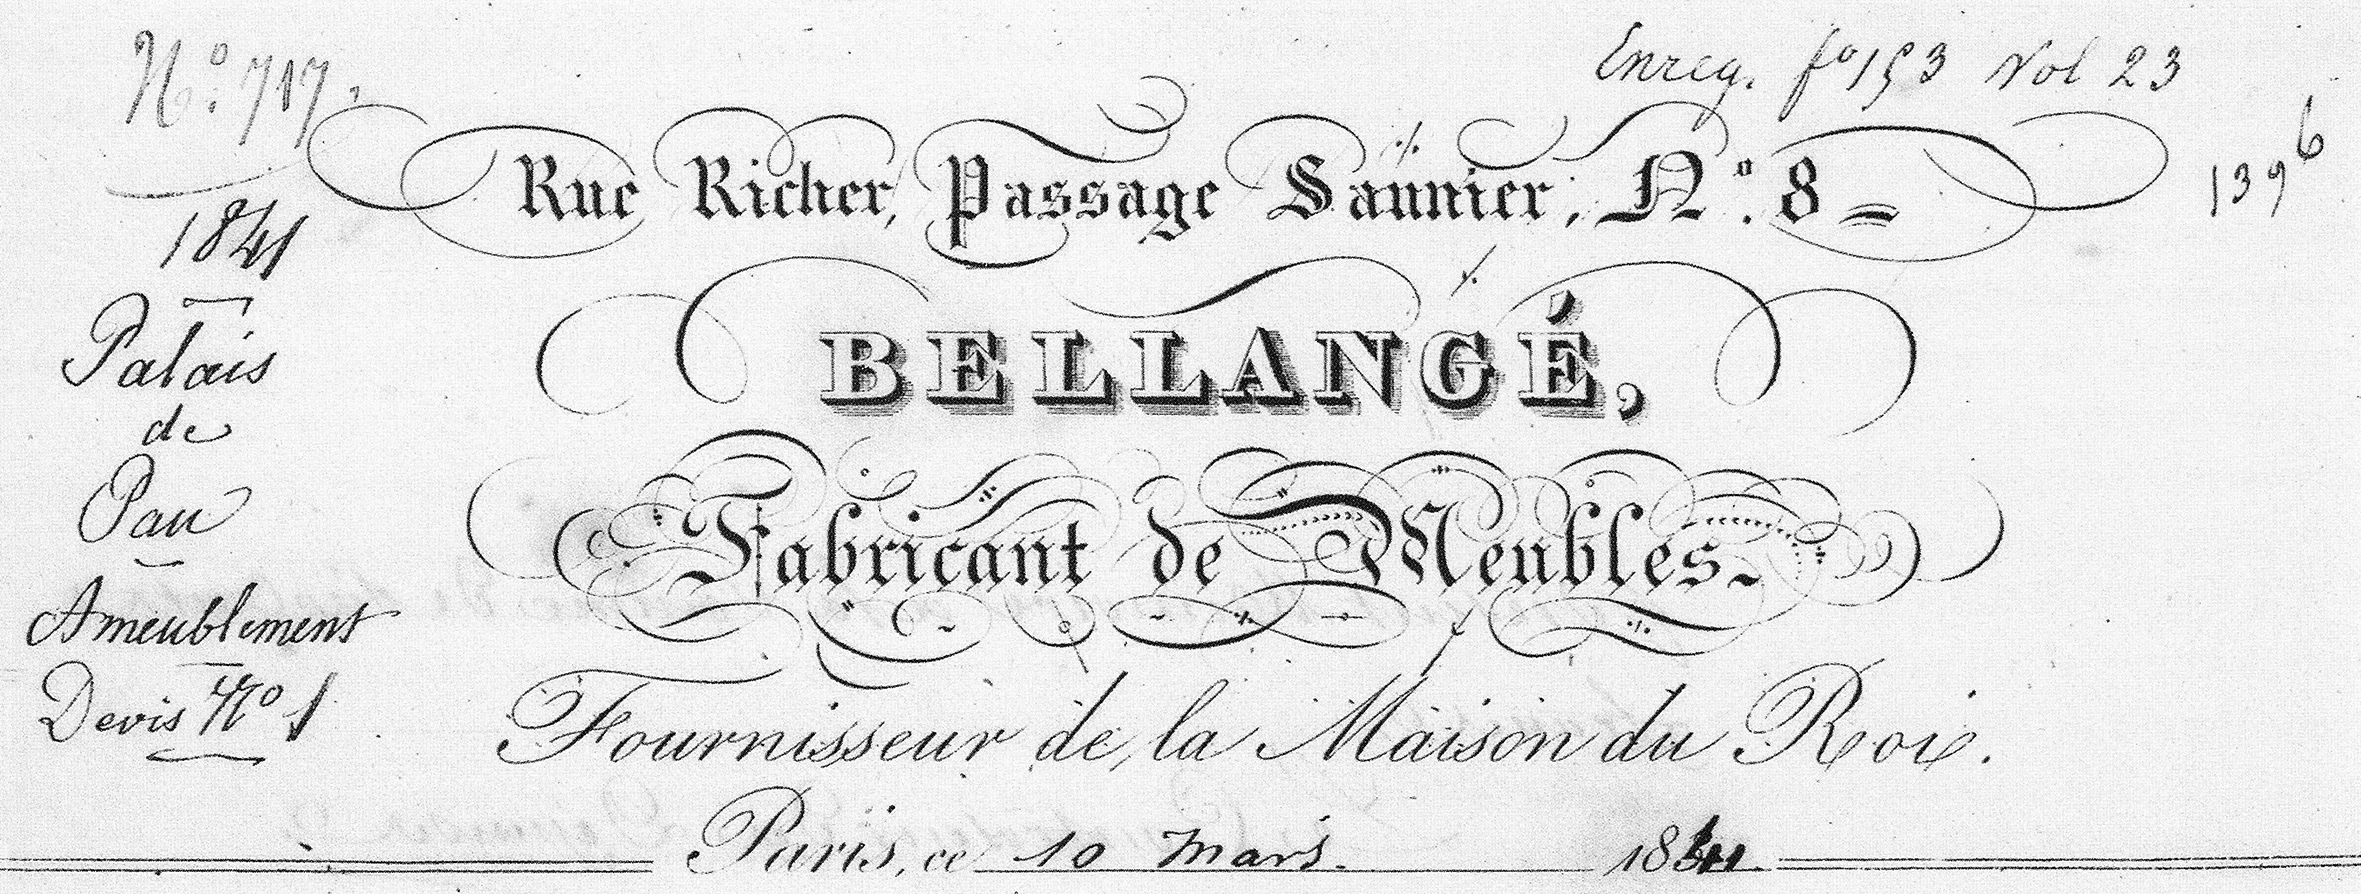 N.º 717.
1841
Palais
de
Pau
Ameublement
Devis Nº 1
Enreg. fº 153 Vol 23
139 6
Rue Richer, Passage Saunier, N.º 8
BELLANGÉ,
Fabricant de Meubles.
Fournisseur de la Maison du Roi.
Paris, ce 10 mars. 1841